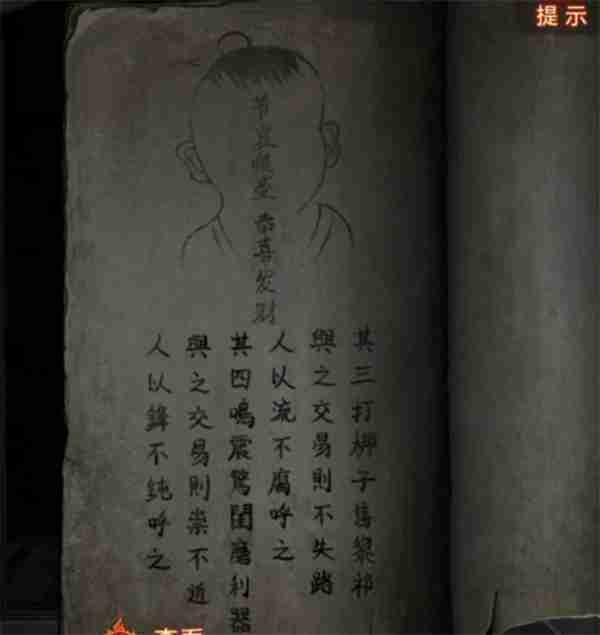 提示
恭喜发财
其三打梆子售黎祁
與之交易則不失路
人以流不腐呼之
其四鳴震驚閨磨利器
與之交易則祟不近
人以鋒不鈍呼之